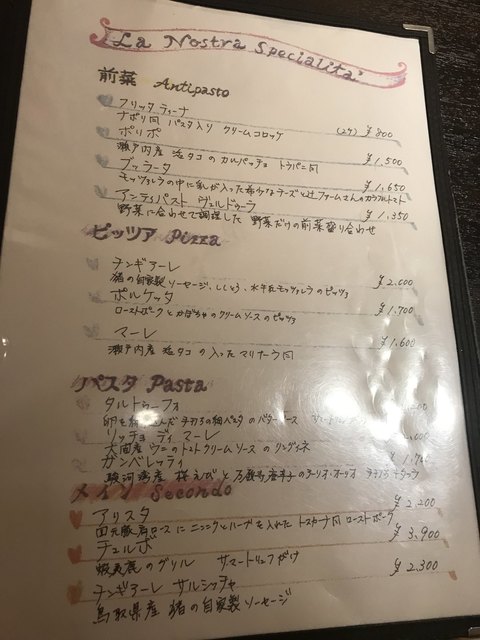 La Nostra Specialita'
前菜 Antipasto
フリッタティーナ
ナポリ風 パスタ入り クリームコロッケ (2ケ) ¥800
ポリポ
瀬戸内産 活タコ の カルパッチョ トラパニ風 ¥1,500
ブッラータ
モッツァレラの中に乳が入った希少なチーズと辻ファームさんのカラフルトマト ¥1,650
アンティパスト ヴェルドゥーラ
野菜に合わせて調理した 野菜だけの前菜盛り合わせ ¥1,350
ピッツア Pizza
チンギアーレ
猪の自家製ソーセージ、ししとう、水牛乳モッツァレラのピッツァ ¥2,000
ポルケッタ
ローストポークとかぼちゃのクリームソースのピッツァ ¥1,700
マーレ
瀬戸内産 活タコ の入った マリナーラ風 ¥1,600
パスタ Pasta
タルトゥーフォ
卵を 手打ちの細パスタ のバターソース
リッチョ ディ マーレ
ウニのトマトクリームソースのリングイネ
ガンベレッティ
駿河湾産 桜えびと のアーリオ・オーリオ
メイン Secondo
アリスタ ¥2,200
豚肩ロースにニンニクとハーブを入れた トスカーナ風 ローストポーク
チェルボ ¥3,900
蝦夷鹿のグリル サマートリュフがけ
チンギアーレ サルシッチャ ¥2,300
鳥取県産 猪の自家製ソーセージ